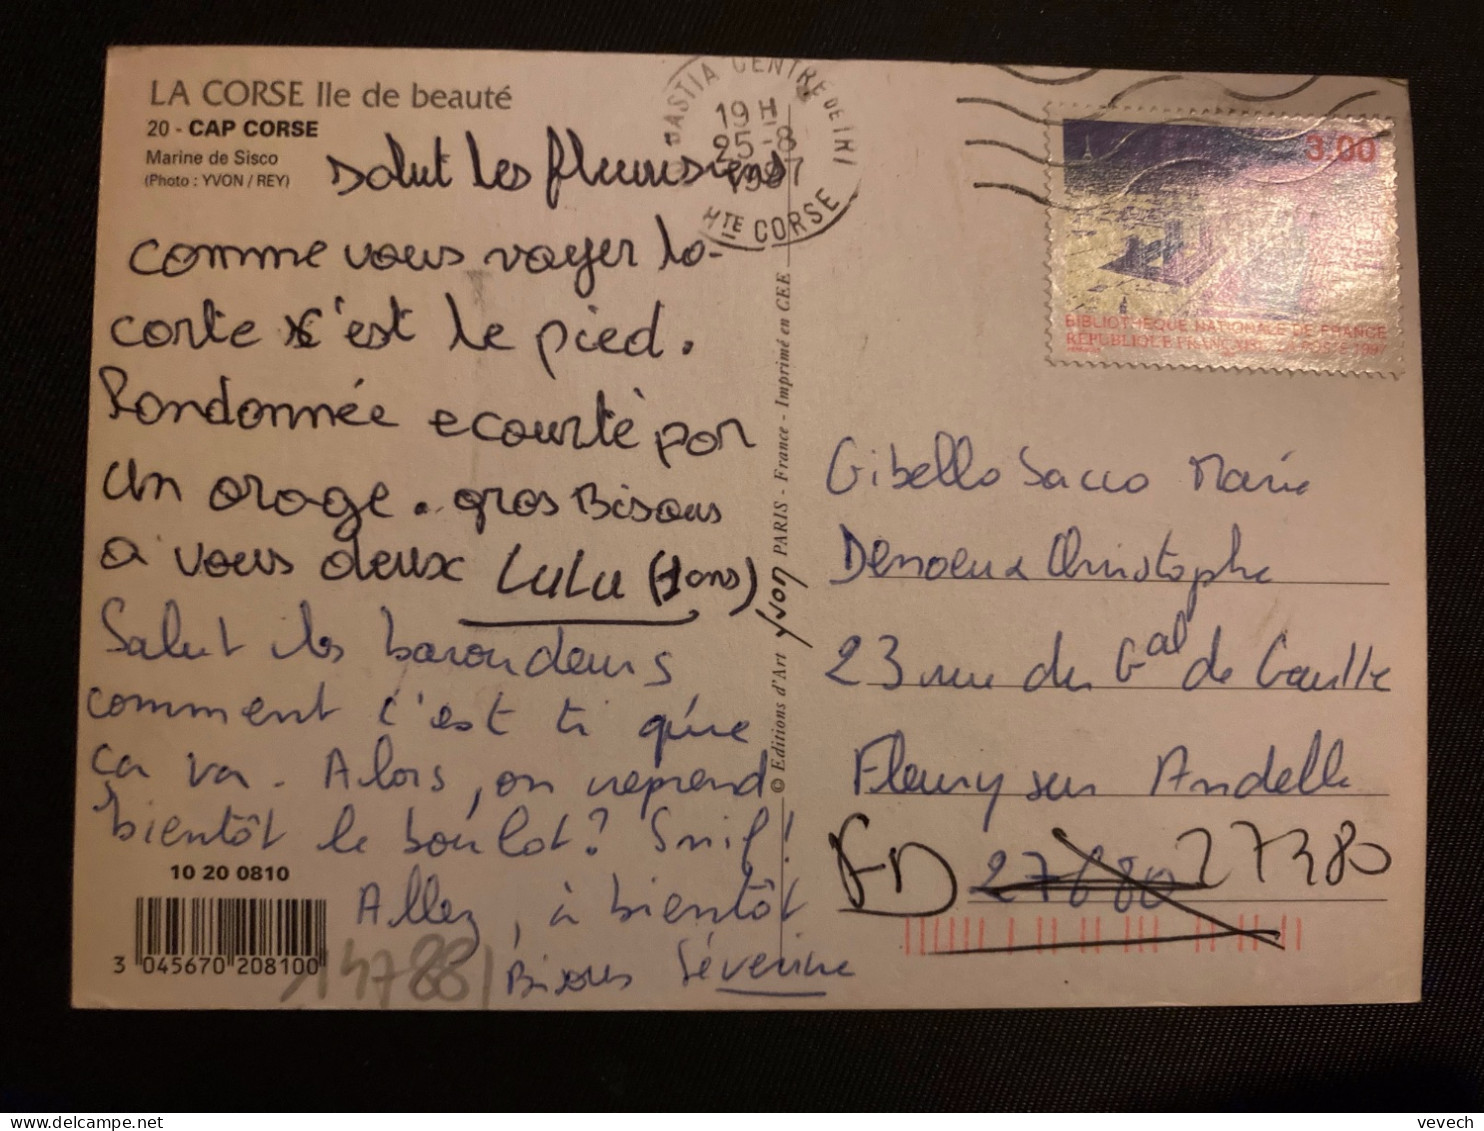 LA CORSE Ile de beauté
20 - CAP CORSE
Marine de Sisco
(Photo : YVON / REY)
Salut les fleurisiens
comme vous voyer la
corte c'est le pied.
Randonnée ecourté par
un orage. gros Bisous
a vous deux LULU (Jons)
Salut les baroudeurs
comment c'est ti que
ca va. Alors, on reprend
bientôt le boulot? Snif!
Allez, à bientôt
Bisous Séverine
10 20 0810
3 045670 208100
14788
© Editions d'Art Yvon PARIS - France - Imprimé en CEE
BASTIA CENTRE DE TRI
19 H
25-8
1997
HTE CORSE
3,00
BIBLIOTHEQUE NATIONALE DE FRANCE
REPUBLIQUE FRANÇAISE LA POSTE 1997
Gibello Sacco Marie
Denoeux Christophe
23 rue du Gal de Gaulle
Fleury sur Andelle
FD 27680 27380
vevech